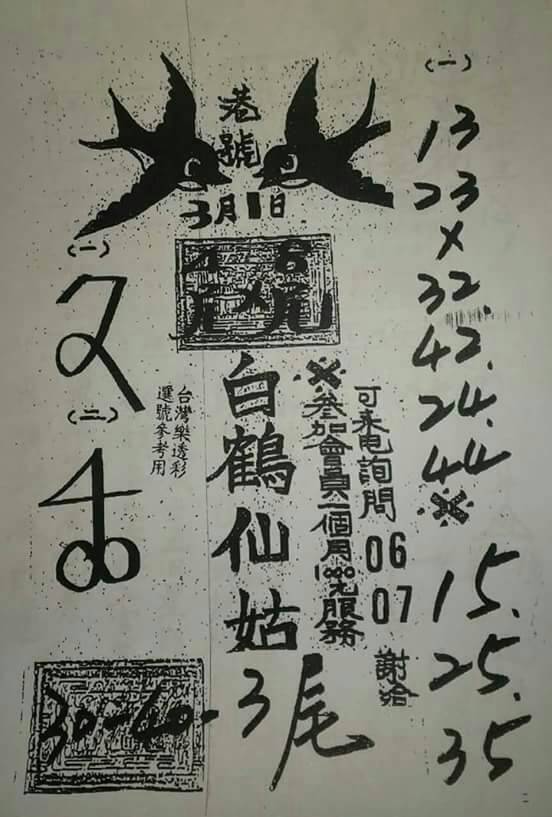 港號
3月1日
(一)
(二)
台灣樂透彩
選號參考用
6尾
白鶴仙姑
※參加會員一個月1000元服務
可來电詢問
06
07
謝洽
30-40-3尾
(一)
13
23
x
32
42.
24.
44
※
15.
25.
35